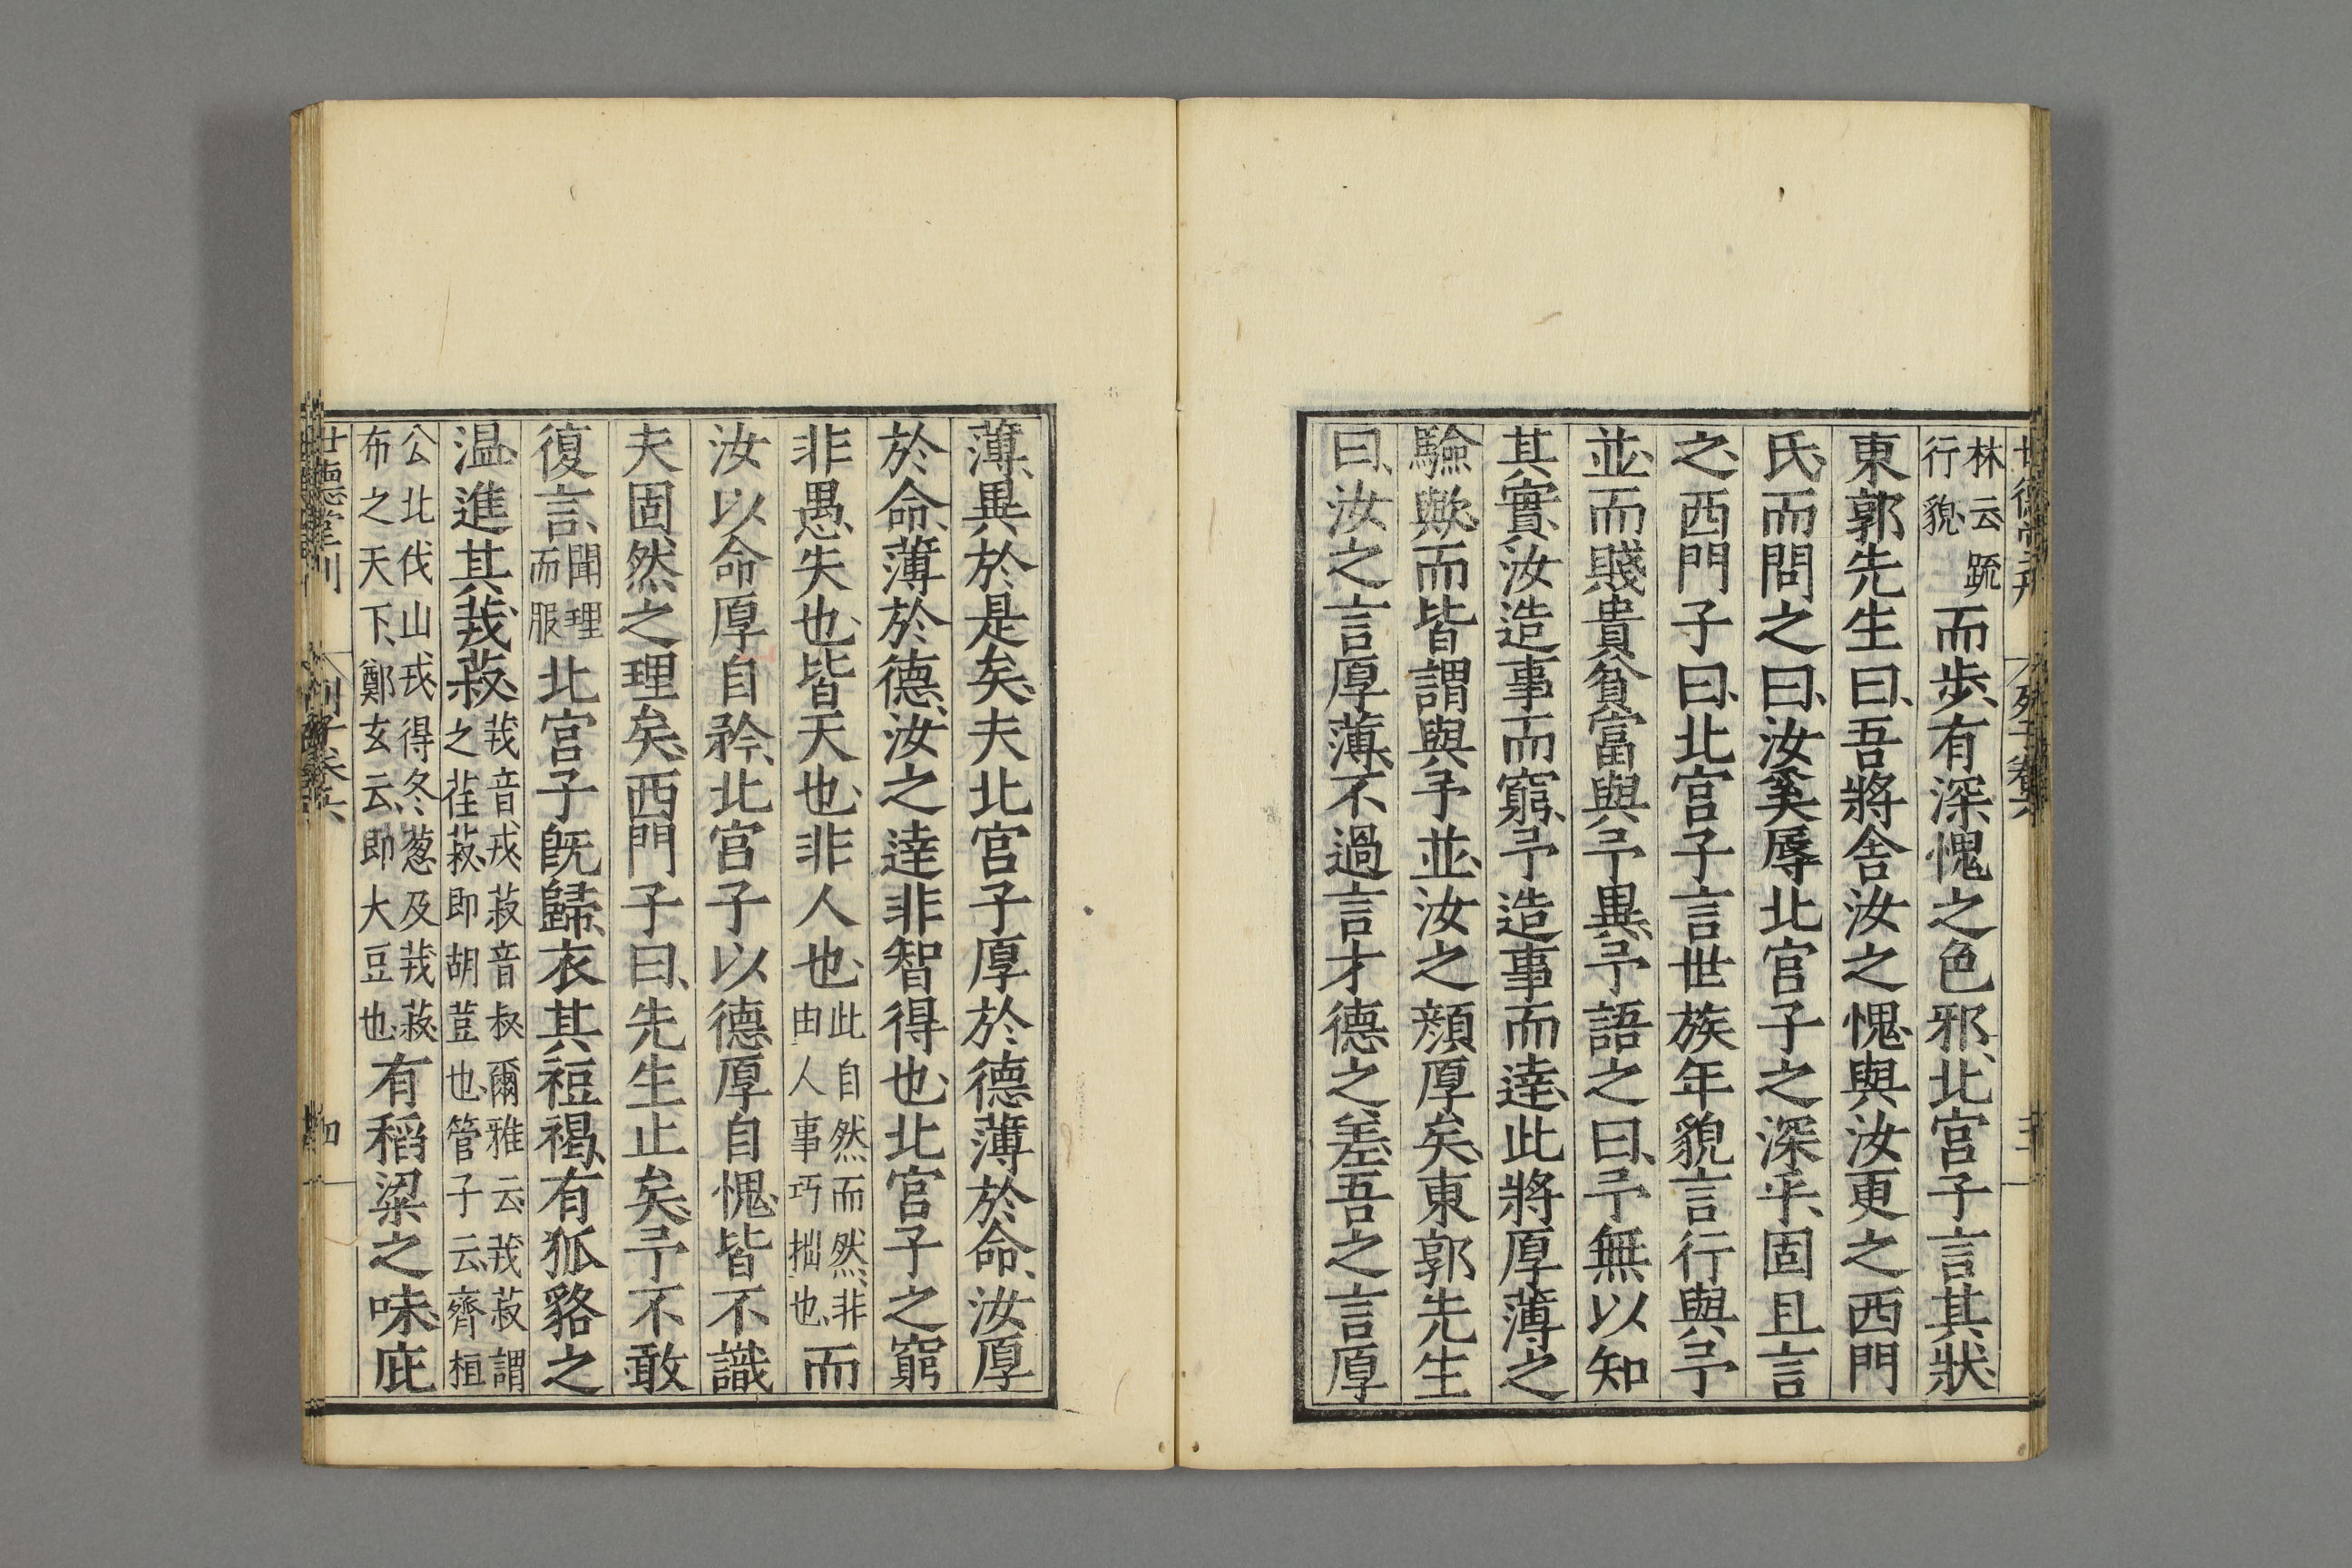 林云䟽
行貌、而步、有深愧之色邪、北宮子言其狀、
東郭先生曰、吾將舍汝之愧、與汝更之西門
氏、而問之曰、汝奚辱北宮子之深乎、固且言
之、西門子曰、北宮子言世族年貌言行與予
並、而賤貴貧富與予異、予語之曰、予無以知
其實、汝造事而窮、予造事而達、此將厚薄之
驗歟、而皆謂與予並、汝之顔厚矣、東郭先生
曰、汝之言厚薄、不過言才德之差、吾之言厚
薄、異於是矣、夫北宮子厚於德、薄於命、汝厚
於命、薄於德、汝之達、非智得也、北宮子之窮、
非愚、失也、皆天也、非人也、此自然而然、非
由人事巧拙也、而
汝以命厚自矜、北宮子以德厚自愧、皆不識
夫固然之理矣、西門子曰、先生止矣、予不敢
復言、聞理
而服北宮子旣歸、衣其裋褐、有狐貉之
溫、進其茙菽、茙音戎菽音叔爾雅云、茙菽謂
之荏菽、即胡荳也、管子云、齊桓
公北伐山戎、得冬葱及茙菽、
布之天下、鄭玄云、即大豆也、有稻粱之味、庇
世德堂刊
列子卷六